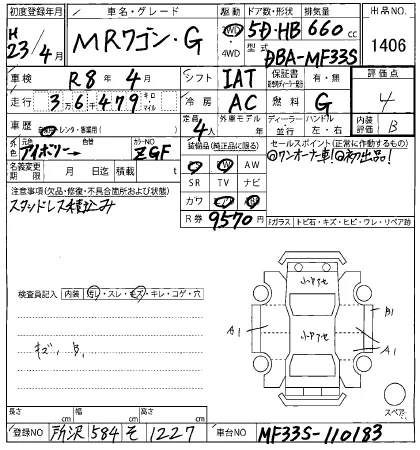 初度登録年月 車名・グレード 駆動 ドア数・形状 排気量 出品NO.
H 23/4月 MRワゴン・G 2WD 4WD 5D・HB 660 cc 1406
型式 DBA-MF33S
車検 R8年4月 シフト IAT 保証書 有・無 評価点
走行 3万6千479 キロ・マイル 冷房 AC 燃料 G 4
車歴 自家用・レンタ・事業用( ) 定員 4人 外車モデル 年 ディーラー 並行 ハンドル 左・右 内装評価 B
外色 元色 アイボリー 色替 カラーNO ZGF 装備品(純正品に限る) セールスポイント(正常に作動するもの)
名義変更期限 月 日迄 積載 t AW ◎ワンオーナー車!◎初出品!
SR TV ナビ
注意事項(欠品・修復・不具合箇所および状態) カワ
スタッドレス積込み R券 9570円 Fガラス トビ石・キズ・ヒビ・ワレ・リペア跡
検査員記入 内装 汚レ・スレ・キズ・キレ・コゲ・穴
小キズ
A1 B1
小キズ A1
キズ、B1
スペアー
長さ cm 幅 cm 高さ cm
登録NO 所沢 584 そ 1227 車台NO MF33S-110183